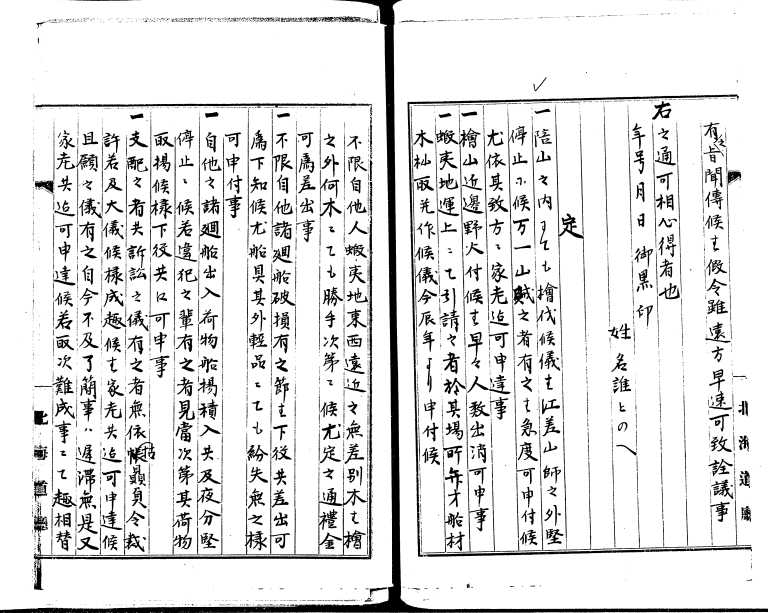 有之旨聞傳候はゞ假令雖遠方早速可致詮議事
右之通可相心得者也
年号月日 御黒印
姓名誰とのへ
定
一 陪山之内ニても檜伐候儀は江差山師之外堅
停止ニ候万一山賊之者有之は急度可申付候
尤依其致方ニ家老迄可申達事
一 檜山近邊野火付候はゞ早々人数出消可申事
一 蝦夷地運上ニて引請之者於其場所弁才船材
木杣取先作候儀今辰年より申付候
北海道廳
不限自他人蝦夷地東西遠近之無差別木は檜
之外何木ニても勝手次第ニ候尤定之通禮金
可為差出事
一 不限自他諸廻船破損有之節は下役共差出可
為下知候尤船具其外輕品ニても紛失無之様
可申付事
一 自他之諸廻船出入荷物船揚積入共及夜分堅
停止ニ候若違犯之輩有之者見當次第其荷物
取揚候様下役共江可申事
一 支配之者共訴訟之儀有之者無依怙贔負令裁
許若及大儀候様成趣候はゞ家老共迄可申達候
且願之儀有之自今不及了簡事ハ遅滞無是又
家老共迄可申達候若取次難成事ニて趣相替
北海道廳